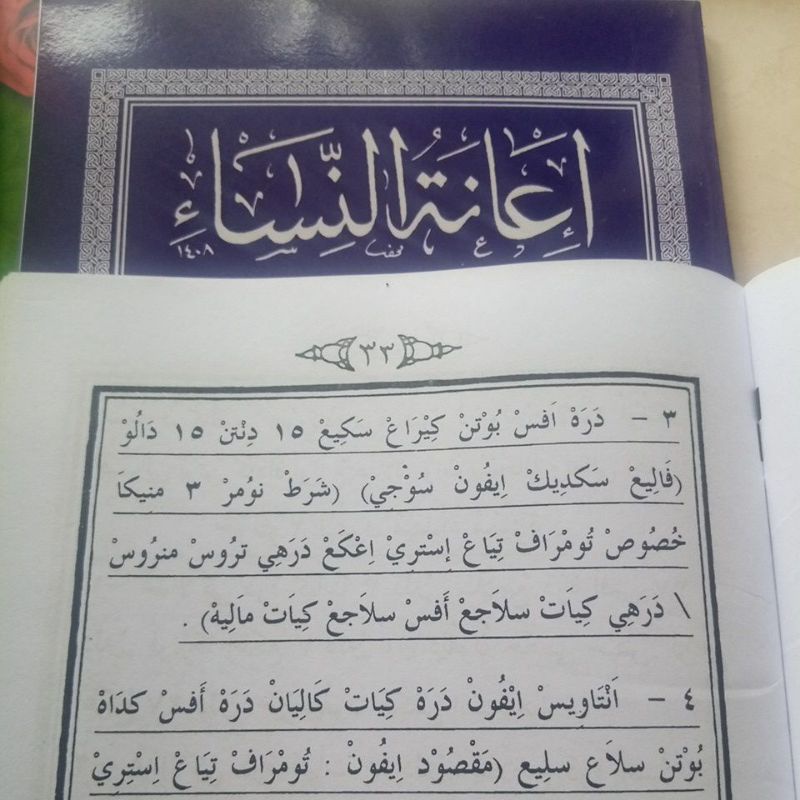 إعانة النساء
١٤٠٨
٣٣
٣ – دَرَهْ اَفَسْ بُوْتَنْ كِيْرَاغْ سَكِيعْ ١٥ دِنْتَنْ ١٥ دَالُوْ
(فَالِيعْ سَكَدِيكْ اِيفُونْ سُوْجِيْ) (شَرَطْ نَوُمَرْ ٣ مَنِيكَا
خُصُوصْ تُومْرَافْ تِيَاغْ إِسْتِرِيْ اِعْكَعْ دَرَهِي تَرُوسْ مَنَرُوسْ
\ دَرَهِي كِيَاتْ سلَاجعْ أَفَسْ سلَاجعْ كِيَاتْ مَالِيهْ) .
٤ – اَنْتَاوِيسْ اِيْفُونْ دَرَهْ كِيَاتْ كَالِيَانْ دَرَهْ أَفَسْ كدَاهْ
بُوْتَنْ سلَاغ سَلِيع (مَقْصُوْد اِيفُونْ : تُومْرَافْ تِيَاغْ اِسْتِرِيْ